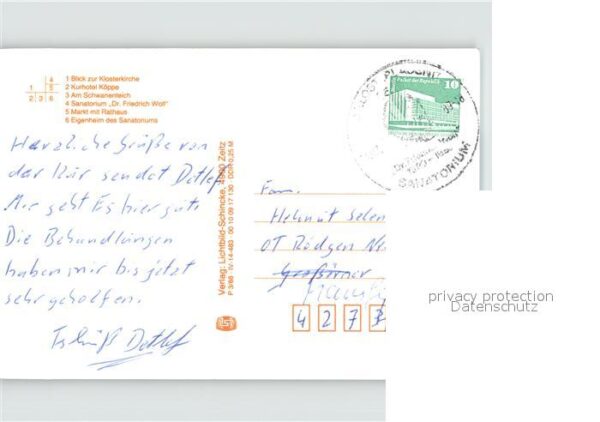 1 Blick zur Klosterkirche
2 Kurhotel Köppe
3 Am Schwanenteich
4 Sanatorium „Dr. Friedrich Wolf"
5 Markt mit Rathaus
6 Eigenheim des Sanatoriums
4
1 5
2 3 6
Palast der Republik
10
DDR
SANATORIUM
Herzliche Grüße von
der Kur sendet Detlef
Mir geht Es hier gut.
Die Behandlungen
haben mir bis jetzt
sehr geholfen.
Es grüßt Detlef
Verlag: Lichtbild-Schincke, 4900 Zeitz
P 3/88 IV-14-483 00 10 09 17 130 DDR 0,25 M
Fam.
Helmut
OT Rödgen
4 2 7 3
privacy protection
Datenschutz